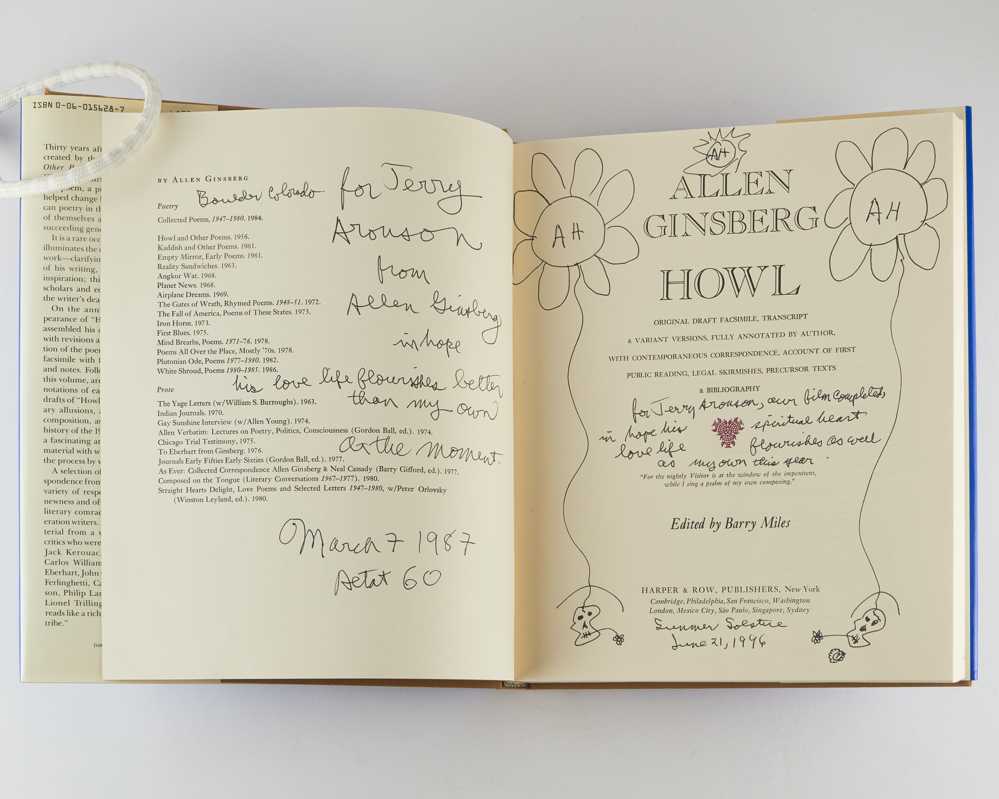 ISBN 0-06-015628-7
Thirty years
created by
Other
poem, a
helped change
can poetry in
of themselves
succeeding
It is a rare
illuminates the
work—clarifying
of his writing,
inspiration;
scholars and
the writer's
On the
pearance of
assembled his
with revisions
tion of the
facsimile with
and notes.
this volume,
notations of
drafts of
ary allusions,
composition,
history of the
a fascinating
material with
the process by
A selection
spondence from
variety of
newness and of
literary
eration writers.
terial from a
critics who were
Jack Kerouac,
Carlos
Eberhart, John
Ferlinghetti,
son, Philip
Lionel Trilling
reads like a rich
tribe."
BY ALLEN GINSBERG
Boulder Colorado
for Jerry
Aronson
from
Allen Ginsberg
in hope
his love life flourishes better
than my own
at the moment.
March 7 1987
Aetat 60
Poetry
Collected Poems, 1947–1980. 1984.
Howl and Other Poems. 1956.
Kaddish and Other Poems. 1961.
Empty Mirror, Early Poems. 1961.
Reality Sandwiches. 1963.
Angkor Wat. 1968.
Planet News. 1968.
Airplane Dreams. 1969.
The Gates of Wrath, Rhymed Poems. 1948–51. 1972.
The Fall of America, Poems of These States. 1973.
Iron Horse. 1973.
First Blues. 1975.
Mind Breaths, Poems. 1971–76. 1978.
Poems All Over the Place, Mostly '70s. 1978.
Plutonian Ode, Poems 1977–1980. 1982.
White Shroud, Poems 1980–1985. 1986.
Prose
The Yage Letters (w/William S. Burroughs). 1963.
Indian Journals. 1970.
Gay Sunshine Interview (w/Allen Young). 1974.
Allen Verbatim: Lectures on Poetry, Politics, Consciousness (Gordon Ball, ed.). 1974.
Chicago Trial Testimony, 1975.
To Eberhart from Ginsberg. 1976.
Journals Early Fifties Early Sixties (Gordon Ball, ed.). 1977.
As Ever: Collected Correspondence Allen Ginsberg & Neal Cassady (Barry Gifford, ed.). 1977.
Composed on the Tongue (Literary Conversations 1967–1977). 1980.
Straight Hearts Delight, Love Poems and Selected Letters 1947–1980, w/Peter Orlovsky
(Winston Leyland, ed.). 1980.
AH
AH
AH
ALLEN
GINSBERG
HOWL
ORIGINAL DRAFT FACSIMILE, TRANSCRIPT
& VARIANT VERSIONS, FULLY ANNOTATED BY AUTHOR,
WITH CONTEMPORANEOUS CORRESPONDENCE, ACCOUNT OF FIRST
PUBLIC READING, LEGAL SKIRMISHES, PRECURSOR TEXTS
& BIBLIOGRAPHY
for Jerry Aronson, our film completed,
in hope his spiritual heart
love life flourishes as well
as my own this year.
"For the nightly Visitor is at the window of the impenitent,
while I sing a psalm of my own composing."
Edited by Barry Miles
HARPER & ROW, PUBLISHERS, New York
Cambridge, Philadelphia, San Francisco, Washington
London, Mexico City, São Paulo, Singapore, Sydney
Summer Solstice
June 21, 1996
AH